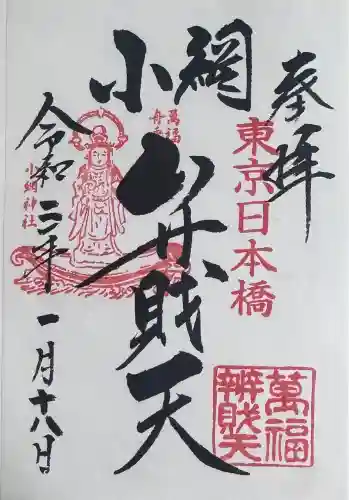 奉拝
東京日本橋
小網
弁財天
萬福
舟乗
小網神社
令和二年
一月十八日
萬福
辨財天